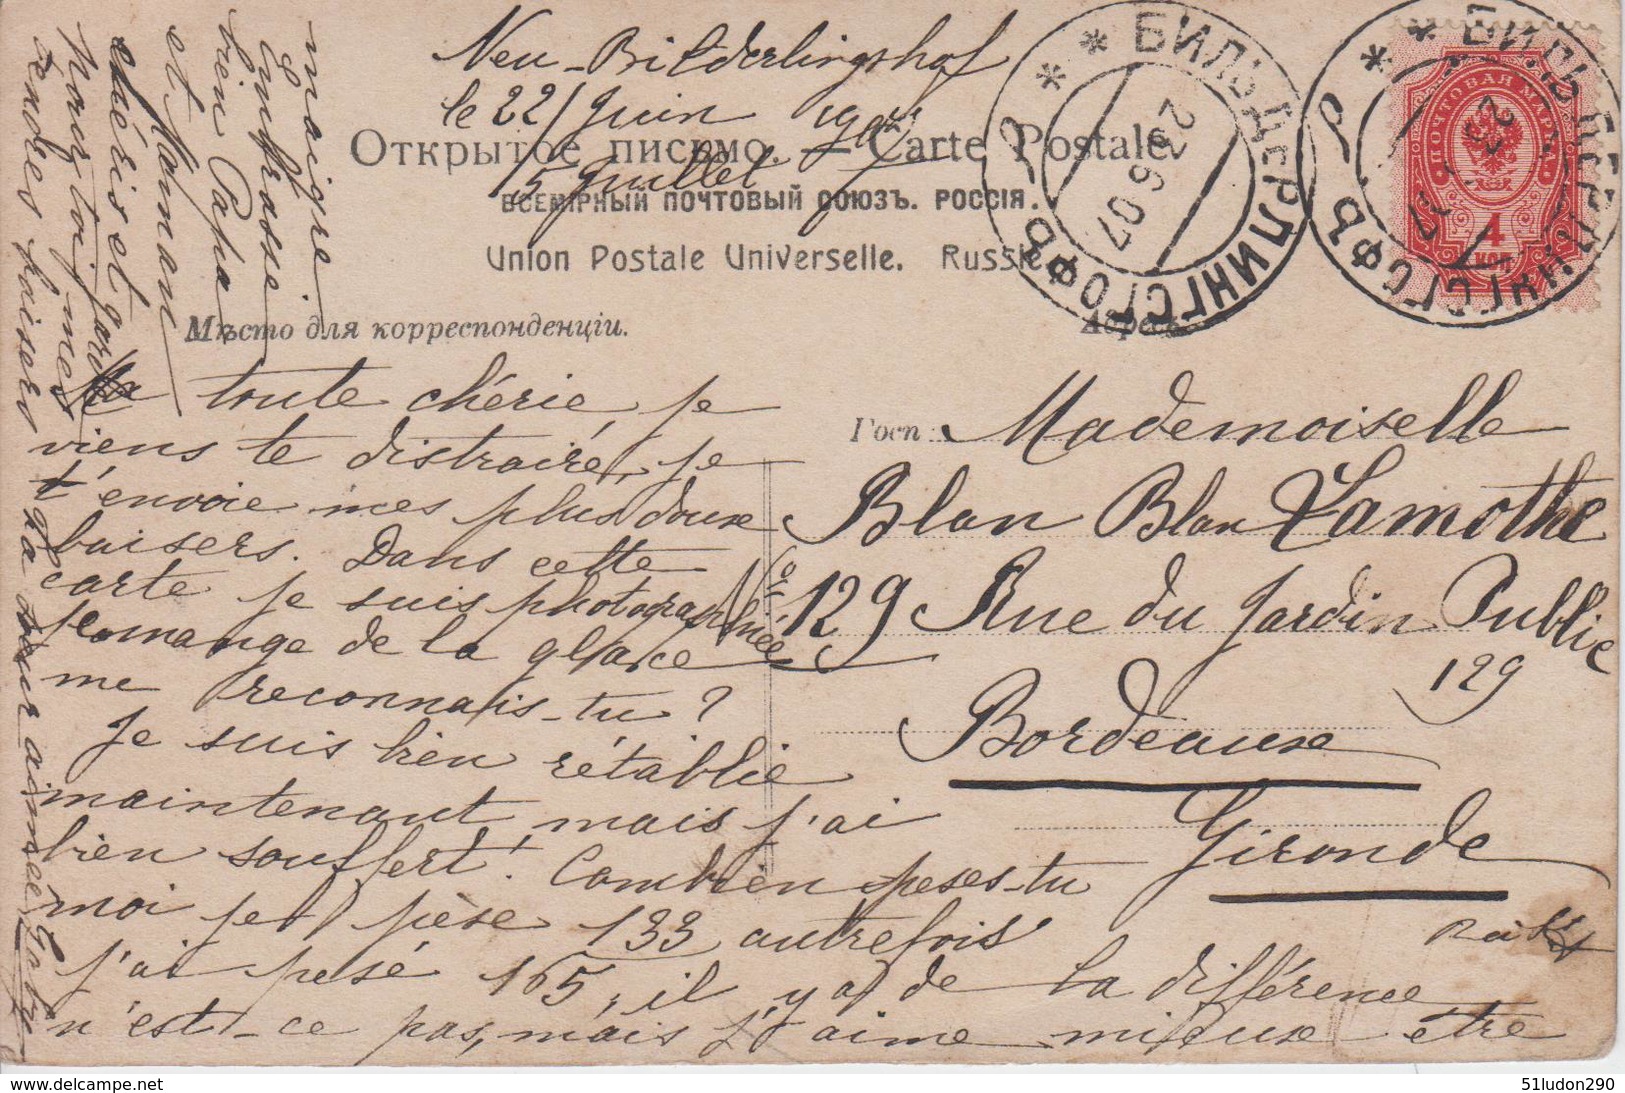 Neu-Bilderlingshof
le 22/ Juin
5 Juillet
Открытое письмо. — Carte Postale.
ВСЕМІРНЫЙ ПОЧТОВЫЙ СОЮЗЪ. РОССІЯ.
Union Postale Universelle. Russie
Мѣсто для корреспонденціи.
Адресъ
БИЛЬДЕРЛИНГСГОФЪ
22 6 07
БИЛЬДЕРЛИНГСГОФЪ
ПОЧТОВАЯ МАРКА
4
КОП
Ma toute chérie, je
viens te distraire, je
t'envoie mes plus doux
baisers. Dans cette
carte je suis photographiée
je mange de la glace
me reconnais-tu?
Je suis bien rétablie
maintenant, mais j'ai
bien souffert! Combien peses-tu
moi je pèse 133 autrefois
j'ai pesé 165, il y a de la différence
n'est-ce pas, mais j'aime mieux être
maigre
Embrasse
bien Papa
et Maman
chéris et garde
pour toi mes
tendres baisers
Ta sœur aimée
Госп.
Mademoiselle
Blan Blan Lamothe
No 129 Rue du Jardin Public
129
Bordeaux
Gironde
51ludon290